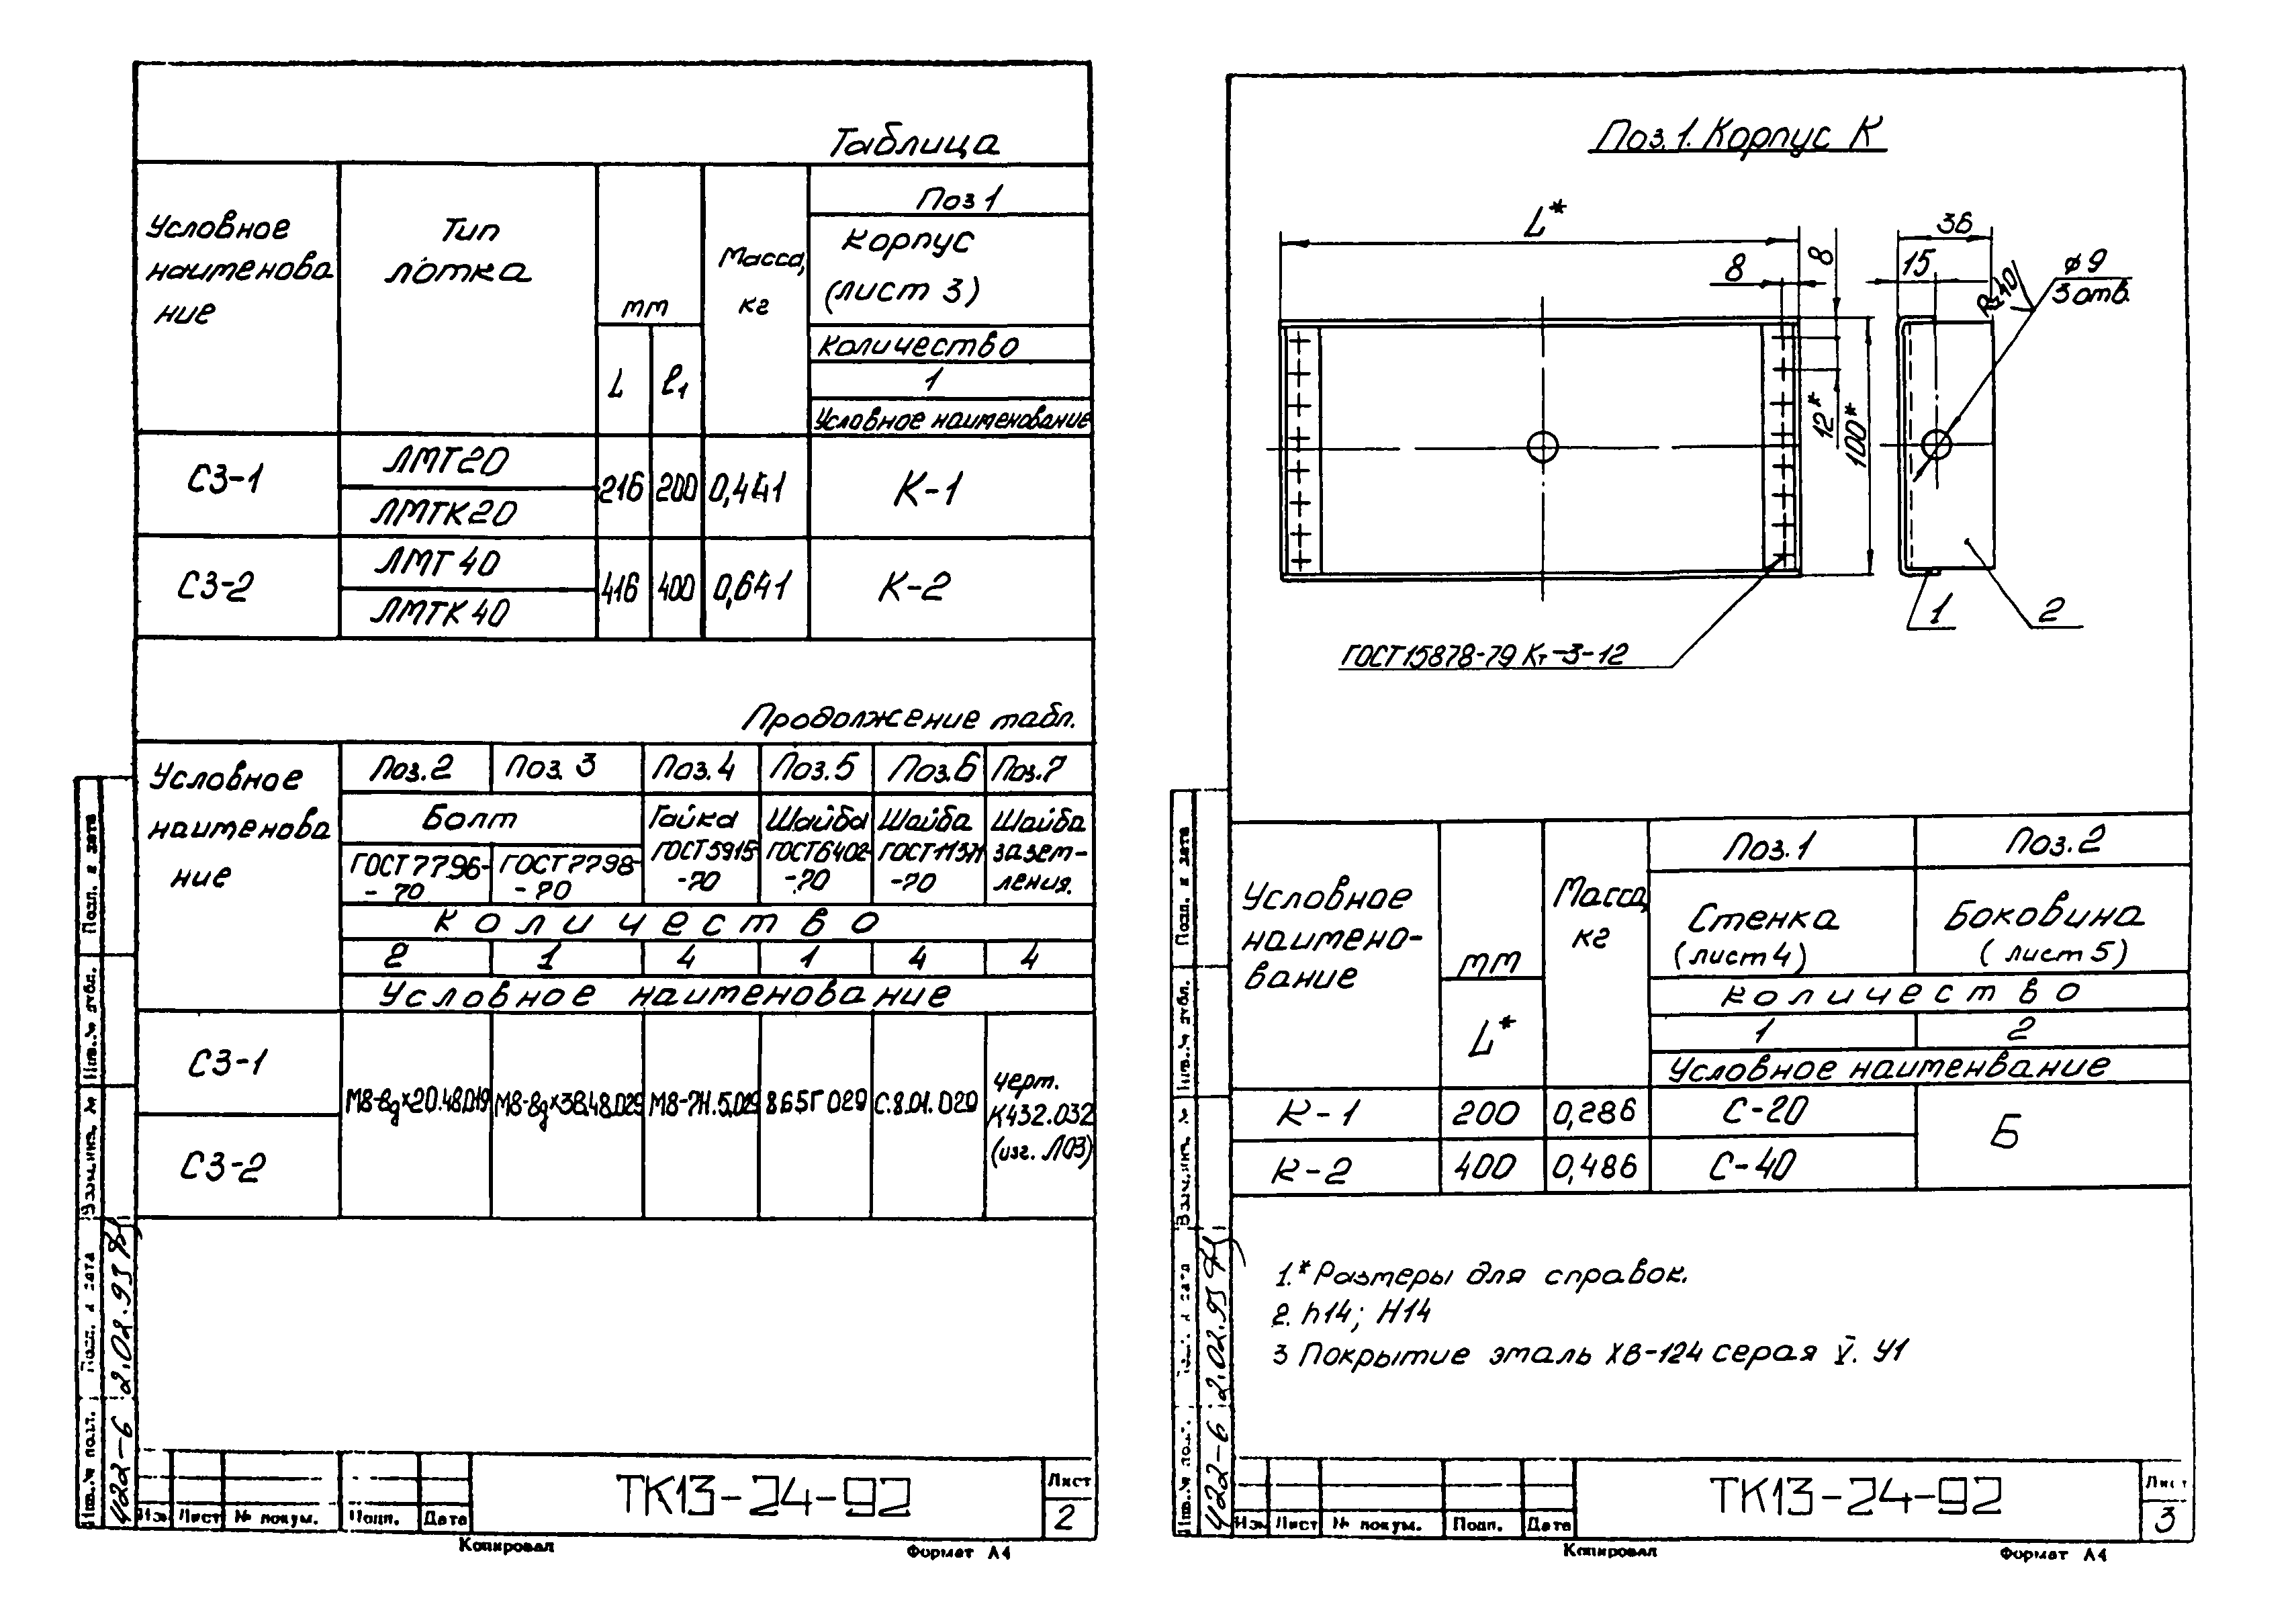 Таблица
Условное
наименова
ние
Тип
лотка
mm
L
ℓ1
Масса,
кг
Поз 1
Корпус
(лист 3)
Количество
1
Условное наименование
СЗ-1
ЛМТ20
ЛМТК20
216
200
0,441
К-1
СЗ-2
ЛМТ 40
ЛМТК 40
416
400
0,641
К-2
Продолжение табл.
Условное
наименова
ние
Поз.2
Поз. 3
Поз.4
Поз.5
Поз.6
Поз.7
Болт
Гайка
Шайба
Шайба
Шайба
ГОСТ7796-
- 70
ГОСТ7798-
- 70
ГОСТ5915
-70
ГОСТ6402
-70
ГОСТ11371
-70
зазем-
ления.
Количество
2
1
4
1
4
4
Условное наименование
СЗ-1
СЗ-2
М8-8gх20.48.019
М8-8gх38.48.029
М8-7Н.5.029
8.65Г 029
С.8.01.029
черт.
К432.032
(изг. ЛОЗ)
Подп. и дата
Инв.№ дубл.
Взам.инв. №
Подп. и дата
2.02.93
Инв.№ подл.
422-6
Изм
Лист
№ докум.
Подп.
Дата
ТК13-24-92
Лист
2
Копировал
Формат А4
Поз. 1. Корпус К
L*
8
8
12*
100*
36
15
Rz40
⌀9
3 отв.
1
2
ГОСТ15878-79 Кт-3-12
Условное
наимено-
вание
mm
L*
Масса,
кг
Поз.1
Поз.2
Стенка
(лист 4)
Боковина
(лист 5)
Количество
1
2
Условное наименвание
К-1
200
0,286
С-20
Б
К-2
400
0,486
С-40
1.* Размеры для справок.
2. h14; H14
3 Покрытие эмаль ХВ-124 серая V. У1
Подп. и дата
Инв.№ дубл.
Взам.инв. №
Подп. и дата
2.02.93
Инв.№ подл.
422-6
Изм
Лист
№ докум.
Подп.
Дата
ТК13-24-92
Лист
3
Копировал
Формат А4